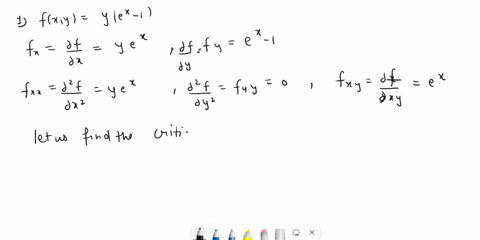 1) f(x,y) = y(e^x-1)
fx = ∂f/∂x = y e^x , ∂f/∂y fy = e^x-1
fxx = ∂²f/∂x² = y e^x , ∂²f/∂y² = fyy = 0 , fxy = ∂f/∂xy = e^x
let us find the criti